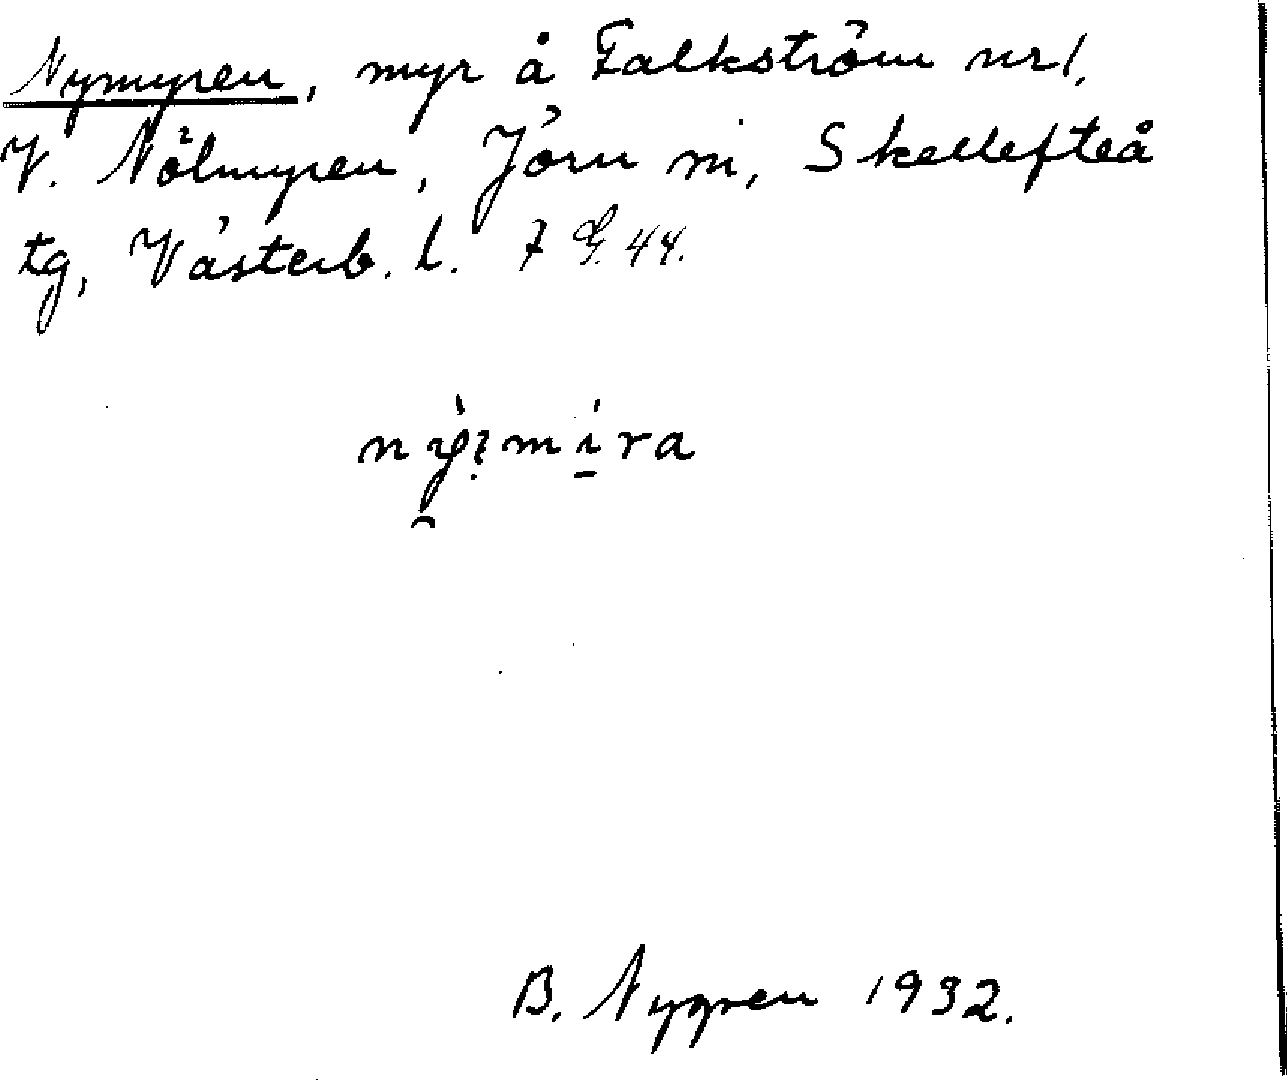 Nymyren, myr å Falkström nr 1,
V. Nölmyren, Jörn sn, Skellefteå
tg, Västerb. l. 7 G. 44.
B. Nygren 1932.